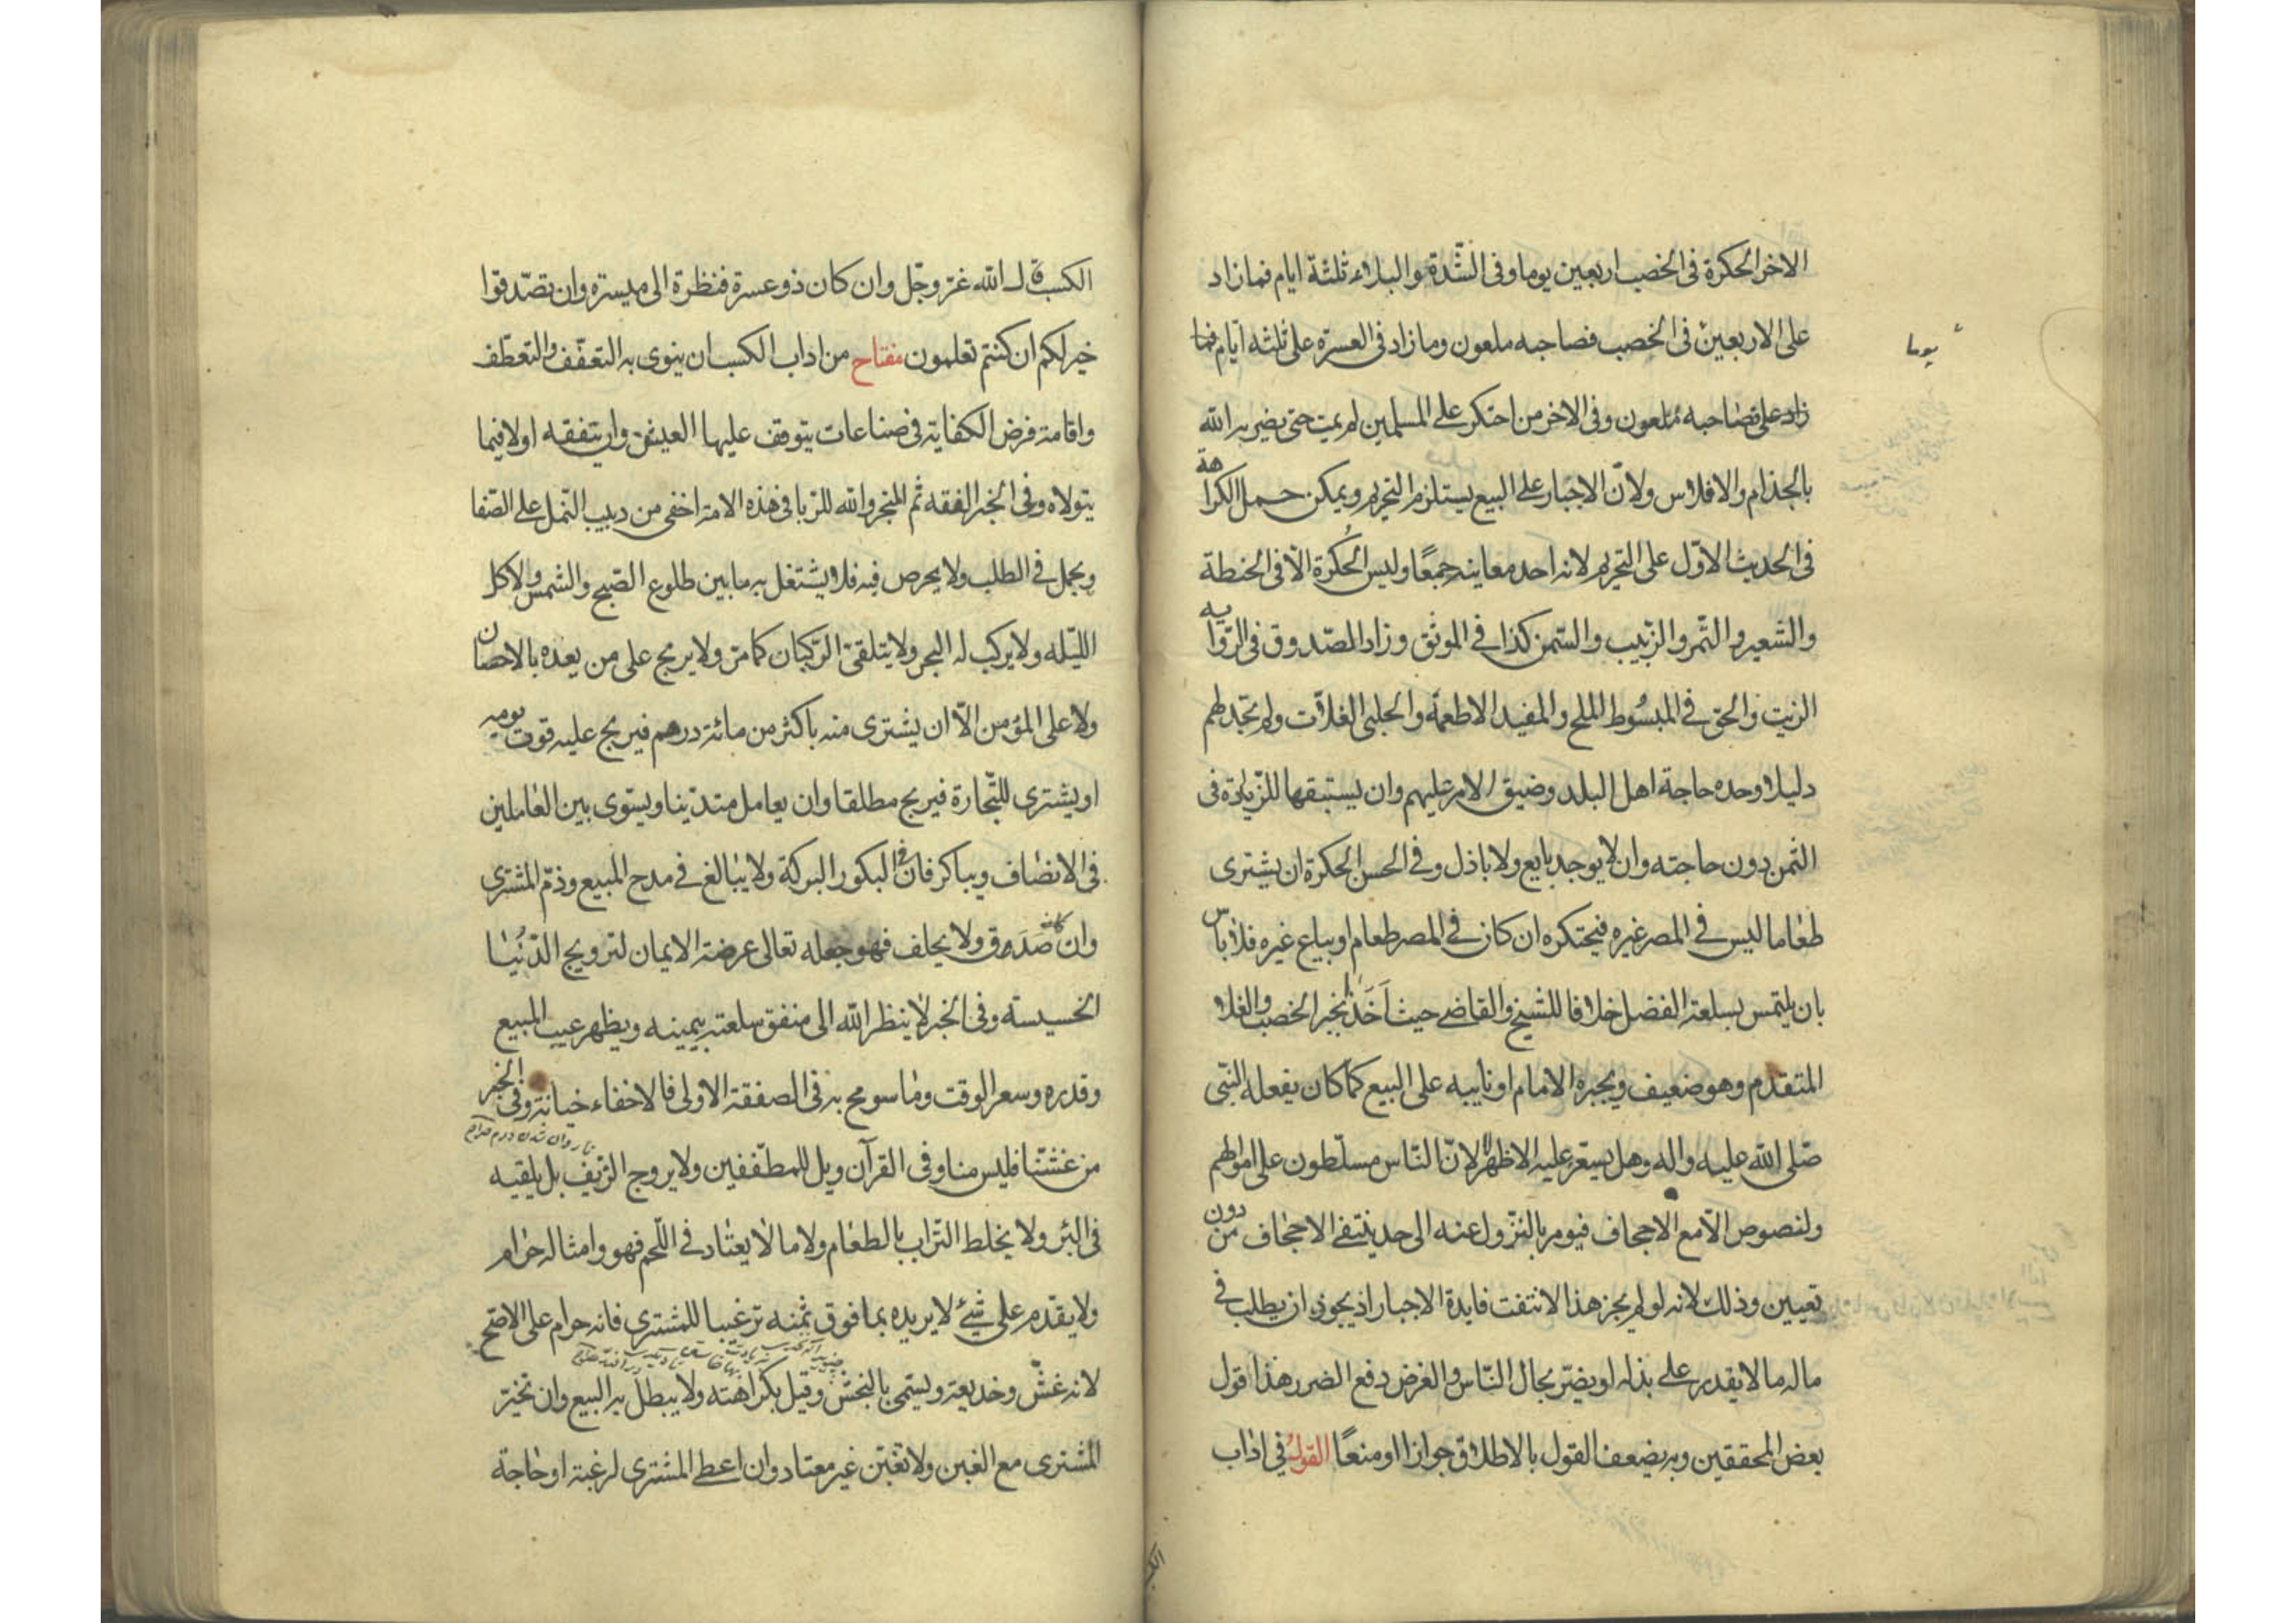 الاخر الحكرة فى الخصب اربعين يوما وفى الشّدة والبلاء ثلثة ايام فمازاد
على الاربعين فى الخصب فصاحبه ملعون ومازاد فى العسرة على ثلثه ايّام فما
يوما
زاد على فصاحبه ملعون وفى الاخر من احتكر على المسلمين لم يمت حتى يضربه الله
بالجذام والافلاس ولانّ الاجبار على البيع يستلزم التحريم ويمكن حمل الكراهة
فى الحديث الاوّل على التحريم لانه احد معانيه جمعًا وليس الحُكرة الّا فى الحنطة
والشّعير والتّمر والزّبيب والسّمن كذا فى الموثق وزاد الصّدوق فى الرّوايه
الزيت والحق فى المبسُوط الملح والمفيد الاطعمة والحلبى الغلّات ولم نجد لهم
دليلا وحده حاجة اهل البلد وضيق الامر عليهم وان يستبقها للزّيادة فى
الثمن دون حاجته وان لا يوجد بايع ولا باذل وفى الحسن الحكرة ان يشترى
طعاما ليس فى المصر غيره فيحتكره ان كان فى المصر طعام او يباع غيره فلا باس
بان يلتمس بسلعته الفضل خلافا للشيخ والقاضى حيث اَخَذا بخبر الخصب والغلا
المتقدم وهو ضعيف ويجبره الامام او نايبه على البيع كما كان يفعله النبّى
صّلى الله عليه واله وهل يسعّر عليه الاظهر لا لانّ النّاس مسلّطون على اموالهم
ولنصوص الّا مع الاجحاف فيومر بالنزول عنه الى حد ينتفى الاجحاف من دون
تعيين وذلك لانه لو لم يجز هذا لانتفت فايدة الاجبار اذ يجوز ان يطلب فى
ماله ما لا يقدر على بذله او يضرّ بحال النّاس والغرض دفع الضرر هذا قول
بعض المحققين وبه يضعف القول بالاطلاق جوازا او منعًا القول فى اداب
الكسب قال الله عزّ وجّل وان كان ذو عسرة فنظرة الى ميسرة وان تصّدقوا
خير لكم ان كنتم تعلمون مفتاح من اداب الكسب ان ينوى به التعفّف والتعطّف
واقامة فرض الكفاية فى صناعات يتوقف عليها العيش وان يتفقه اولا فيما
يتولاه وفى الخبر الفقه ثم المتجر والله للرّبا فى هذه الامة اخفى من دبيب النّمل على الصّفا
ويجمل فى الطلب ولا يحرص فيه فلا يشتغل به ما بين طلوع الصّبح والشمس ولا كل
اللّيله ولا يركب له البحر ولا يتلقى الرّكبان كما مرّ ولا يربح على من يعده بالاحسان
ولا على المؤمن الّا ان يشترى منه باكثر من مائة درهم فيربح عليه قوت يومه
او يشترى للتّجارة فيربح مطلقا وان يعامل متدّينا ويستوى بين العاملين
فى الانصاف ويباكر فان فى البكور البركة ولا يبالغ فى مدح المبيع وذمّ المشترى
وان كان صَدَق ولا يحلف فهو جعله تعالى عرضة الايمان لترويج الدّنُيا
الخسيسة وفى الخبر لا ينظر الله الى منفق سلعته بيمينه ويظهر عيب المبيع
وقدره وسعر الوقت وما سومح به فى الصفقة الاولى فالاخفاء خيانة وفى الخبر
من غشّنا فليس منا وفى القرآن ويل للمطفّفين ولا يروج الزّيف بل يلقيه
فى البئر ولا يخلط التّراب بالطعام ولا ما لا يعتاد فى اللّحم فهو وامثاله حرام
ولا يقدّم على شئ لا يريده بما فوق ثمنه ترغيبا للمشترى فانه حرام على الاصّح
لانه غشّ وخديعة ويسّمى بالنجش وقيل بكراهته ولا يبطل به البيع وان تخيّر
المشترى مع الغبن ولا تغبّن غير معتاد وان اعطى المشترى لرغبة او حاجة